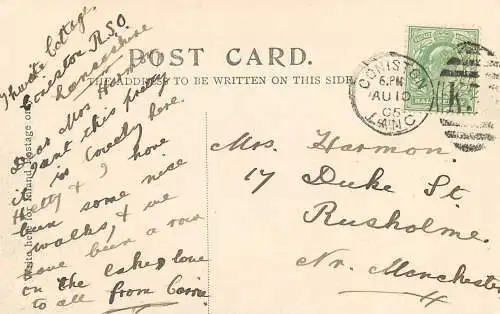 Thwaite Cottage.
Coniston R.S.O.
Lancashire
POST CARD.
THE ADDRESS TO BE WRITTEN ON THIS SIDE
Write here for Inland Postage only
Dear Mrs Harmon
isn't this pretty
is lovely here.
Hetty & I have
been some nice
walks, & we
have been a row
on the lake, love
to all from Carrie
CONISTON
6.PM
AU 10
05
LANC
K.
Mrs. Harmon.
17 Duke St.
Rusholme.
Nr. Manchester